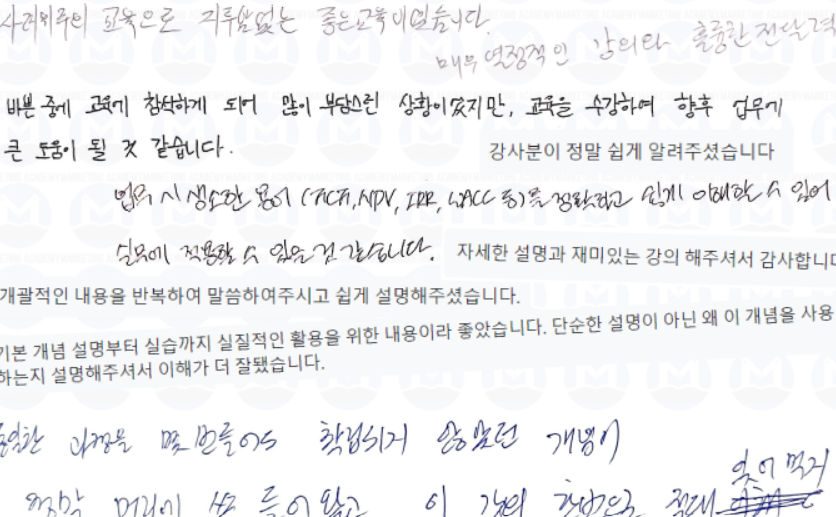 사례위주의 교육으로 지루함없는 좋은교육이었습니다.
매우 열정적인 강의와 훌륭한 전달력
바쁜 중에 교육에 참석하게 되어 많이 부담스런 상황이었지만, 교육을 수강하여 향후 업무에
큰 도움이 될 것 같습니다.
강사분이 정말 쉽게 알려주셨습니다
업무 시 생소한 용어 (FCFF, NPV, IRR, WACC 등)를 정확하고 쉽게 이해할 수 있어
실무에 적용할 수 있을 것 같습니다.
자세한 설명과 재미있는 강의 해주셔서 감사합니다
개괄적인 내용을 반복하여 말씀하여주시고 쉽게 설명해주셨습니다.
기본 개념 설명부터 실습까지 실질적인 활용을 위한 내용이라 좋았습니다. 단순한 설명이 아닌 왜 이 개념을 사용
하는지 설명해주셔서 이해가 더 잘됐습니다.
동일한 과정을 몇 번 들어도 확립되지 않았던 개념이
머리에 쏙 들어왔고 이 강의 한번으로 절대 잊어먹지